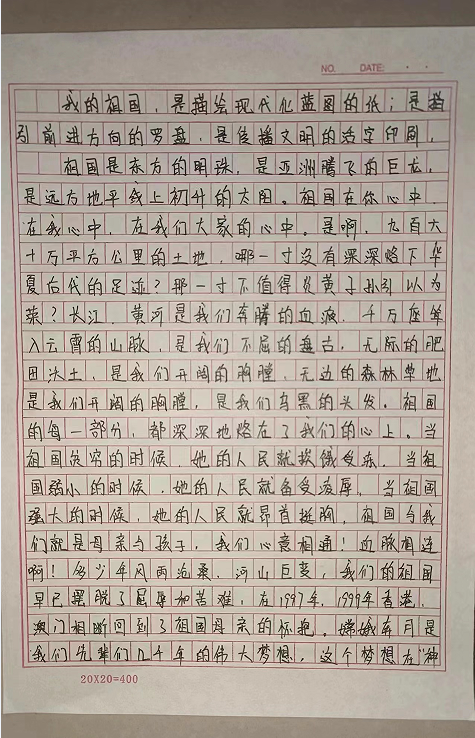 NO. DATE: · ·
我的祖国，是描绘现代化蓝图的纸；是指
引前进方向的罗盘，是传播文明的活字印刷。
祖国是东方的明珠，是亚洲腾飞的巨龙，
是远方地平线上初升的太阳。祖国在你心中，
在我心中，在我们大家的心中。是啊，九百六
十万平方公里的土地，哪一寸没有深深烙下华
夏后代的足迹？那一寸不值得炎黄子孙引以为
荣？长江、黄河是我们奔腾的血液，千万座耸
入云霄的山脉，是我们不屈的盘古，无际的肥
田沃土，是我们开阔的胸膛，无边的森林草地
是我们开阔的胸膛，是我们乌黑的头发。祖国
的每一部分，都深深地烙在了我们的心上。当
祖国贫穷的时候，她的人民就挨饿受冻，当祖
国弱小的时候，她的人民就备受凌辱，当祖国
强大的时候，她的人民就昂首挺胸，祖国与我
们就是母亲与孩子，我们心意相通！血脉相连
啊！多少年风雨沧桑，河山巨变，我们的祖国
早已摆脱了屈辱和苦难，在1997年，1999年香港、
澳门相断回到了祖国母亲的怀抱。嫦娥奔月是
我们先辈们几千年的伟大梦想，这个梦想在"神
20X20=400